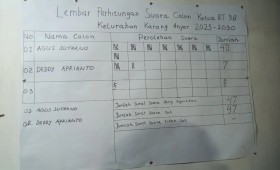 Lembar Perhitungan Suara Calon Ketua RT 38
Kelurahan Karang Anyar 2025-2030
No Nama Calon Perolehan Suara Jumlah
01 AGUS SUTARNO 40
02 DEDDY APRIANTO 7
03
01 AGUS SUTARNO Jumlah Surat Suara yang digunakan 47
02 DEDDY APRIANTO Jumlah Surat Suara Sah 47
Jumlah Surat Suara Tidak Sah -